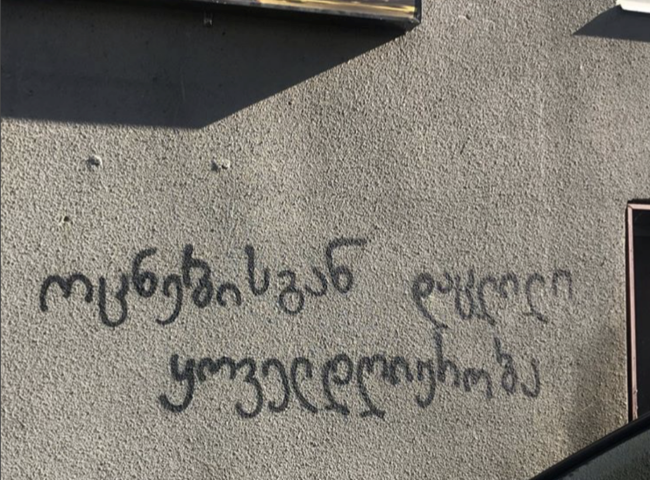 ოცნებისგან დაცლილი
ყოველდღიურობა